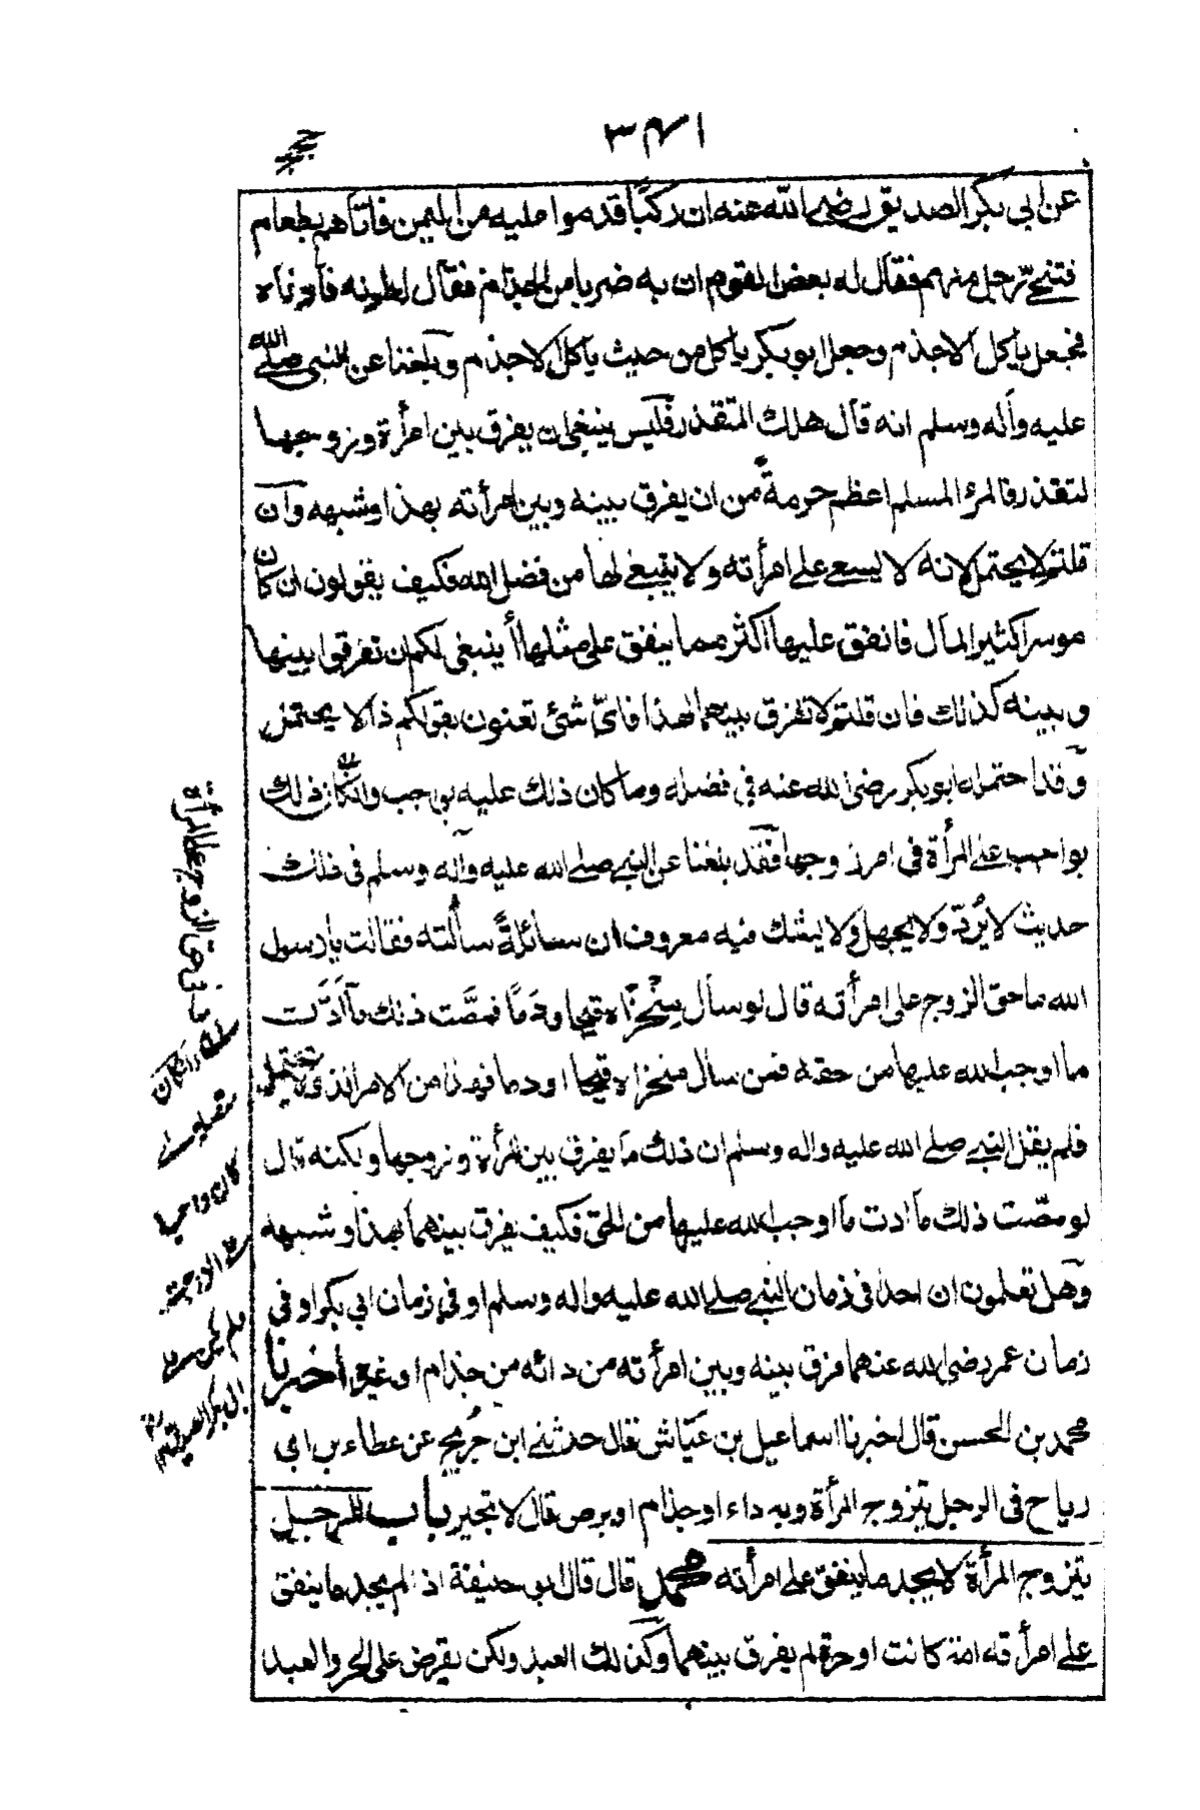 ٣٤١
عن ابي بكر الصديق رضي الله عنه ان ركبًا قدموا عليه من اليمن فاتاهم بطعام
فتنحى رجل منهم فقال له بعض القوم ان به ضربا من الجذام فقال فأدناه
فجعل ياكل الاجذم وجعل ابو بكر ياكل من حيث ياكل الاجذم وبلغنا عن النبي صلى الله
عليه وآله وسلم انه قال هلك المتقذر فليس ينبغي ان يفرق بين امرأة وزوجها
لتقذر فالمرء المسلم اعظم حرمةً من ان يفرق بينه وبين امرأته بهذا وشبهه وان
قلتم لا يحتمل لانه لا يسع على امرأته ولا ينبغي لها من فضل الله فكيف يقولون ان كان
موسرا كثير المال فانفق عليها اكثر مما ينفق على مثلها أينبغي لكم ان تفرقوا بينها
وبينه كذلك فان قلتم لا تفرق بينهما لهذا فايّ شئ تعنون بقولكم ذا لا يحتمل
وقد احتمله ابو بكر رضي الله عنه في فضله وما كان ذلك عليه بواجب وانكان ذلك
بواجب على المرأة في امر زوجها فقد بلغنا عن النبي صلى الله عليه وآله وسلم في ذلك
حديث لا يُردّ ولا يجهل ولا يشك فيه معروف ان سائلةً سألته فقالت يا رسول
الله ما حق الزوج على امرأته قال لو سال مِنْخَرَاه قيحا ودَمًا فمصَّت ذلك ما أدَّت
ما اوجب الله عليها من حقه فمن سال منخراه قيحا او دما فهذا من الامر الذي لا يحتمل
فلم يقل النبي صلى الله عليه واله وسلم ان ذلك ما يفرق بين المرأة وزوجها ولكنه قال
لو مصّت ذلك ما ادت ما اوجب الله عليها من الحق فكيف يفرق بينهما بهذا وشبهه
وهل تعلمون ان احدا في زمان النبي صلى الله عليه واله وسلم او في زمان ابي بكر او في
زمان عمر رضي الله عنهما فرق بينه وبين امرأته من دائه من جذام او غيره اخبرنا
محمد بن الحسن قال اخبرنا اسماعيل بن عيّاش قال حدثني ابن جُريج عن عطاء بن ابي
رباح في الرجل يتزوج المرأة وبه داء او جذام او برص قال لا تخير باب الرجل
يتزوج المرأة لا يجد ما ينفق على امرأته محمد قال قال ابو حنيفة اذا لم يجد ما ينفق
على امرأته امة كانت او حرة لم يفرق بينهما وكذلك العبد ولكن يقرض على الحر والعبد
حق الزوج على المرأة